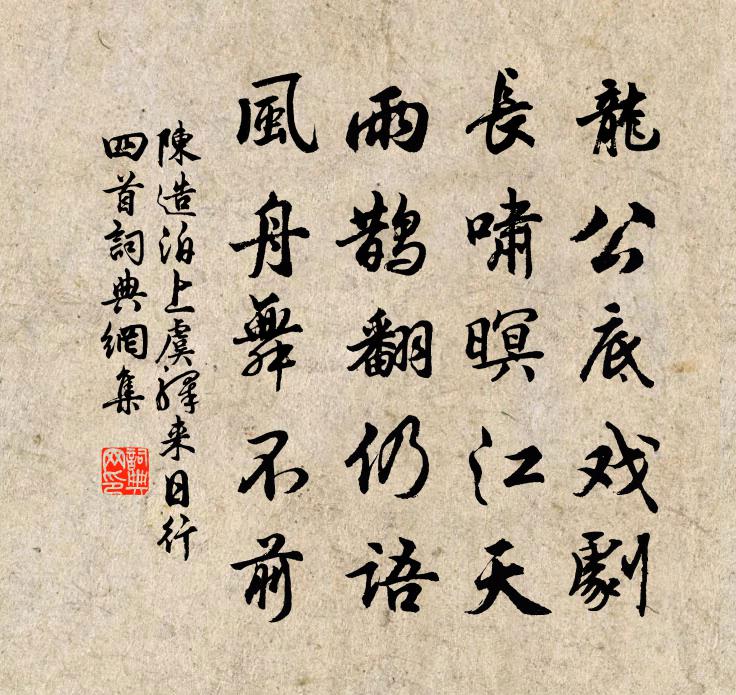 龍公底戏劇
長嘯暝江天
雨鵲翻仍語
風舟舞不前
陳造泊上虞驛来日行
四首詞典網集
詞典
网印